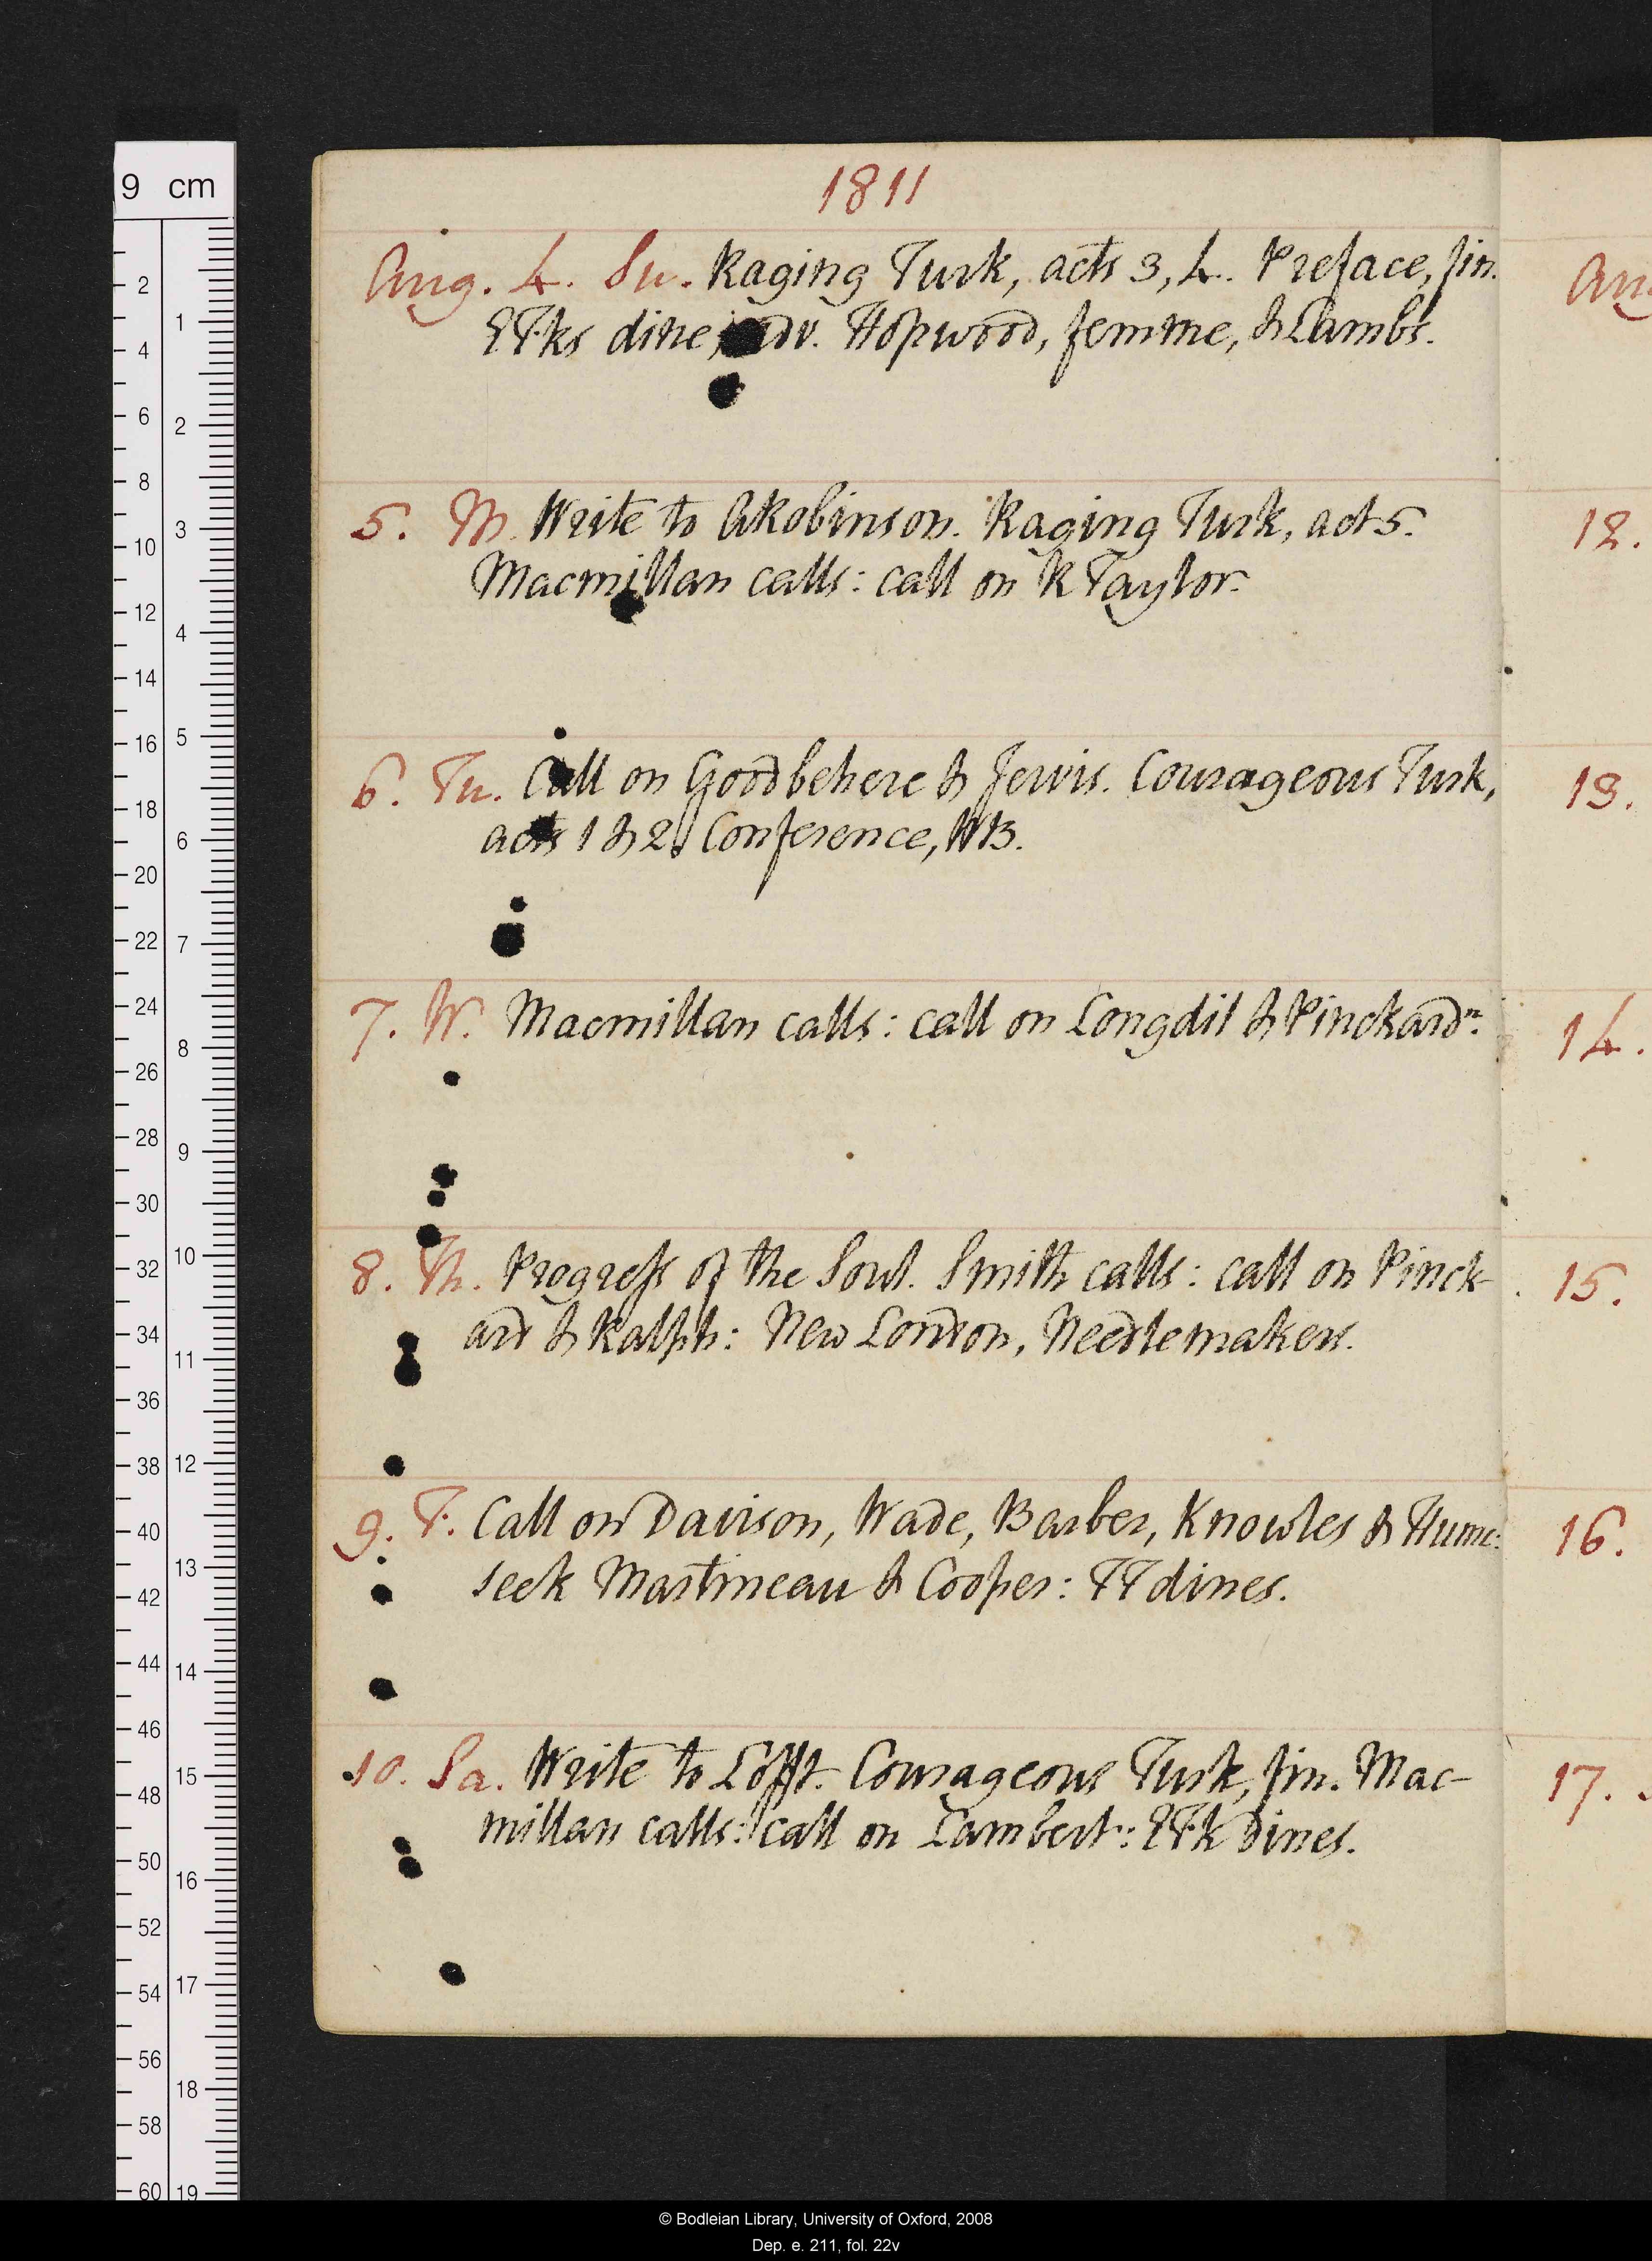 1811
Aug. 4. Su. Raging Turk, acts 3, 4. Preface, fin.
dine; adv. Hopwood, femme, & Lambs.
5. M. Write to GRobinson. Raging Turk, act 5.
Macmillan calls: call on R Taylor.
6. Tu. Call on Goodbehere & Jervis. Courageous Turk,
acts 1 & 2. Conference, WB.
7. W. Macmillan calls: call on Longdil & Pinckard n.
8. Th. Progress of the Soul. Smith calls: call on Pinck-
ard & Ralph: New London, Needlemakers.
9. F. Call on Davison, Wade, Barber, Knowles & Hume:
seek Martineau & Cooper: TT dines.
10. Sa. Write to Lofft. Courageous Turk, fin. Mac-
millan calls: call on Lambert n: dines.
Au
12.
13.
14.
15.
16.
17.
9 cm
2
4
6
8
10
12
14
16
18
20
22
24
26
28
30
32
34
36
38
40
42
44
46
48
50
52
54
56
58
60
1
2
3
4
5
6
7
8
9
10
11
12
13
14
15
16
17
18
19
© Bodleian Library, University of Oxford, 2008
Dep. e. 211, fol. 22v